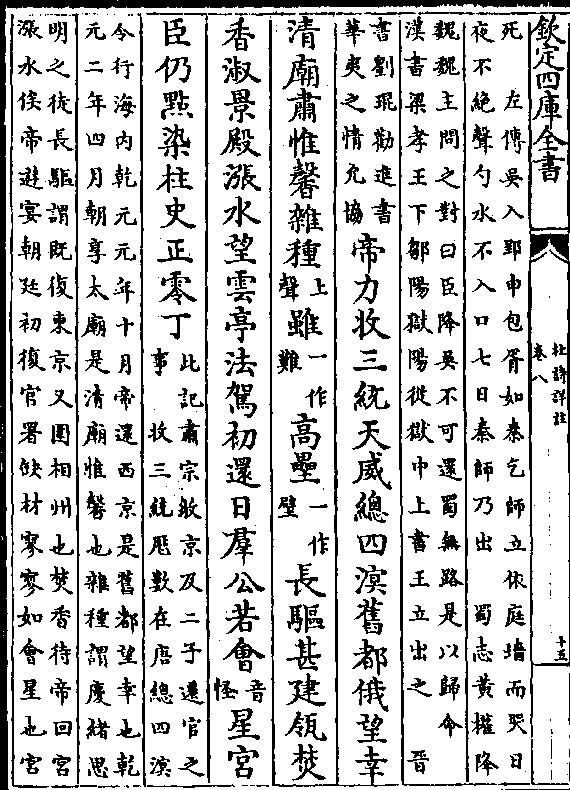 欽定四庫全書
杜詩詳註
卷八
十五
死　左傳吳入郢申包胥如秦乞師立依庭墻而哭日
夜不絶聲勺水不入口七日秦師乃出　蜀志黃權降
魏魏主問之對曰臣降吳不可還蜀無路是以歸命
漢書梁孝王下鄒陽獄陽從獄中上書王立出之　晉
書劉琨勸進書華夷之情允協帝力收三統天威總四溟舊都俄望幸
清廟肅惟馨雜種上聲雖一作難高壘一作壁長驅甚建瓴焚
香淑景殿漲水望雲亭法駕初還日羣公若會音怪星宮
臣仍點染柱史正零丁此記肅宗收京及二子遷官之事　收三統厯數在唐總四溟
令行海内乾元元年十月帝還西京是舊都望幸也乾
元二年四月朝享太廟是清廟惟馨也雜種謂慶緒思
明之徒長驅謂既復東京又圍相州也焚香待帝回宮
漲水俟帝遊宴朝廷初復官署缺材寥寥如會星也宮